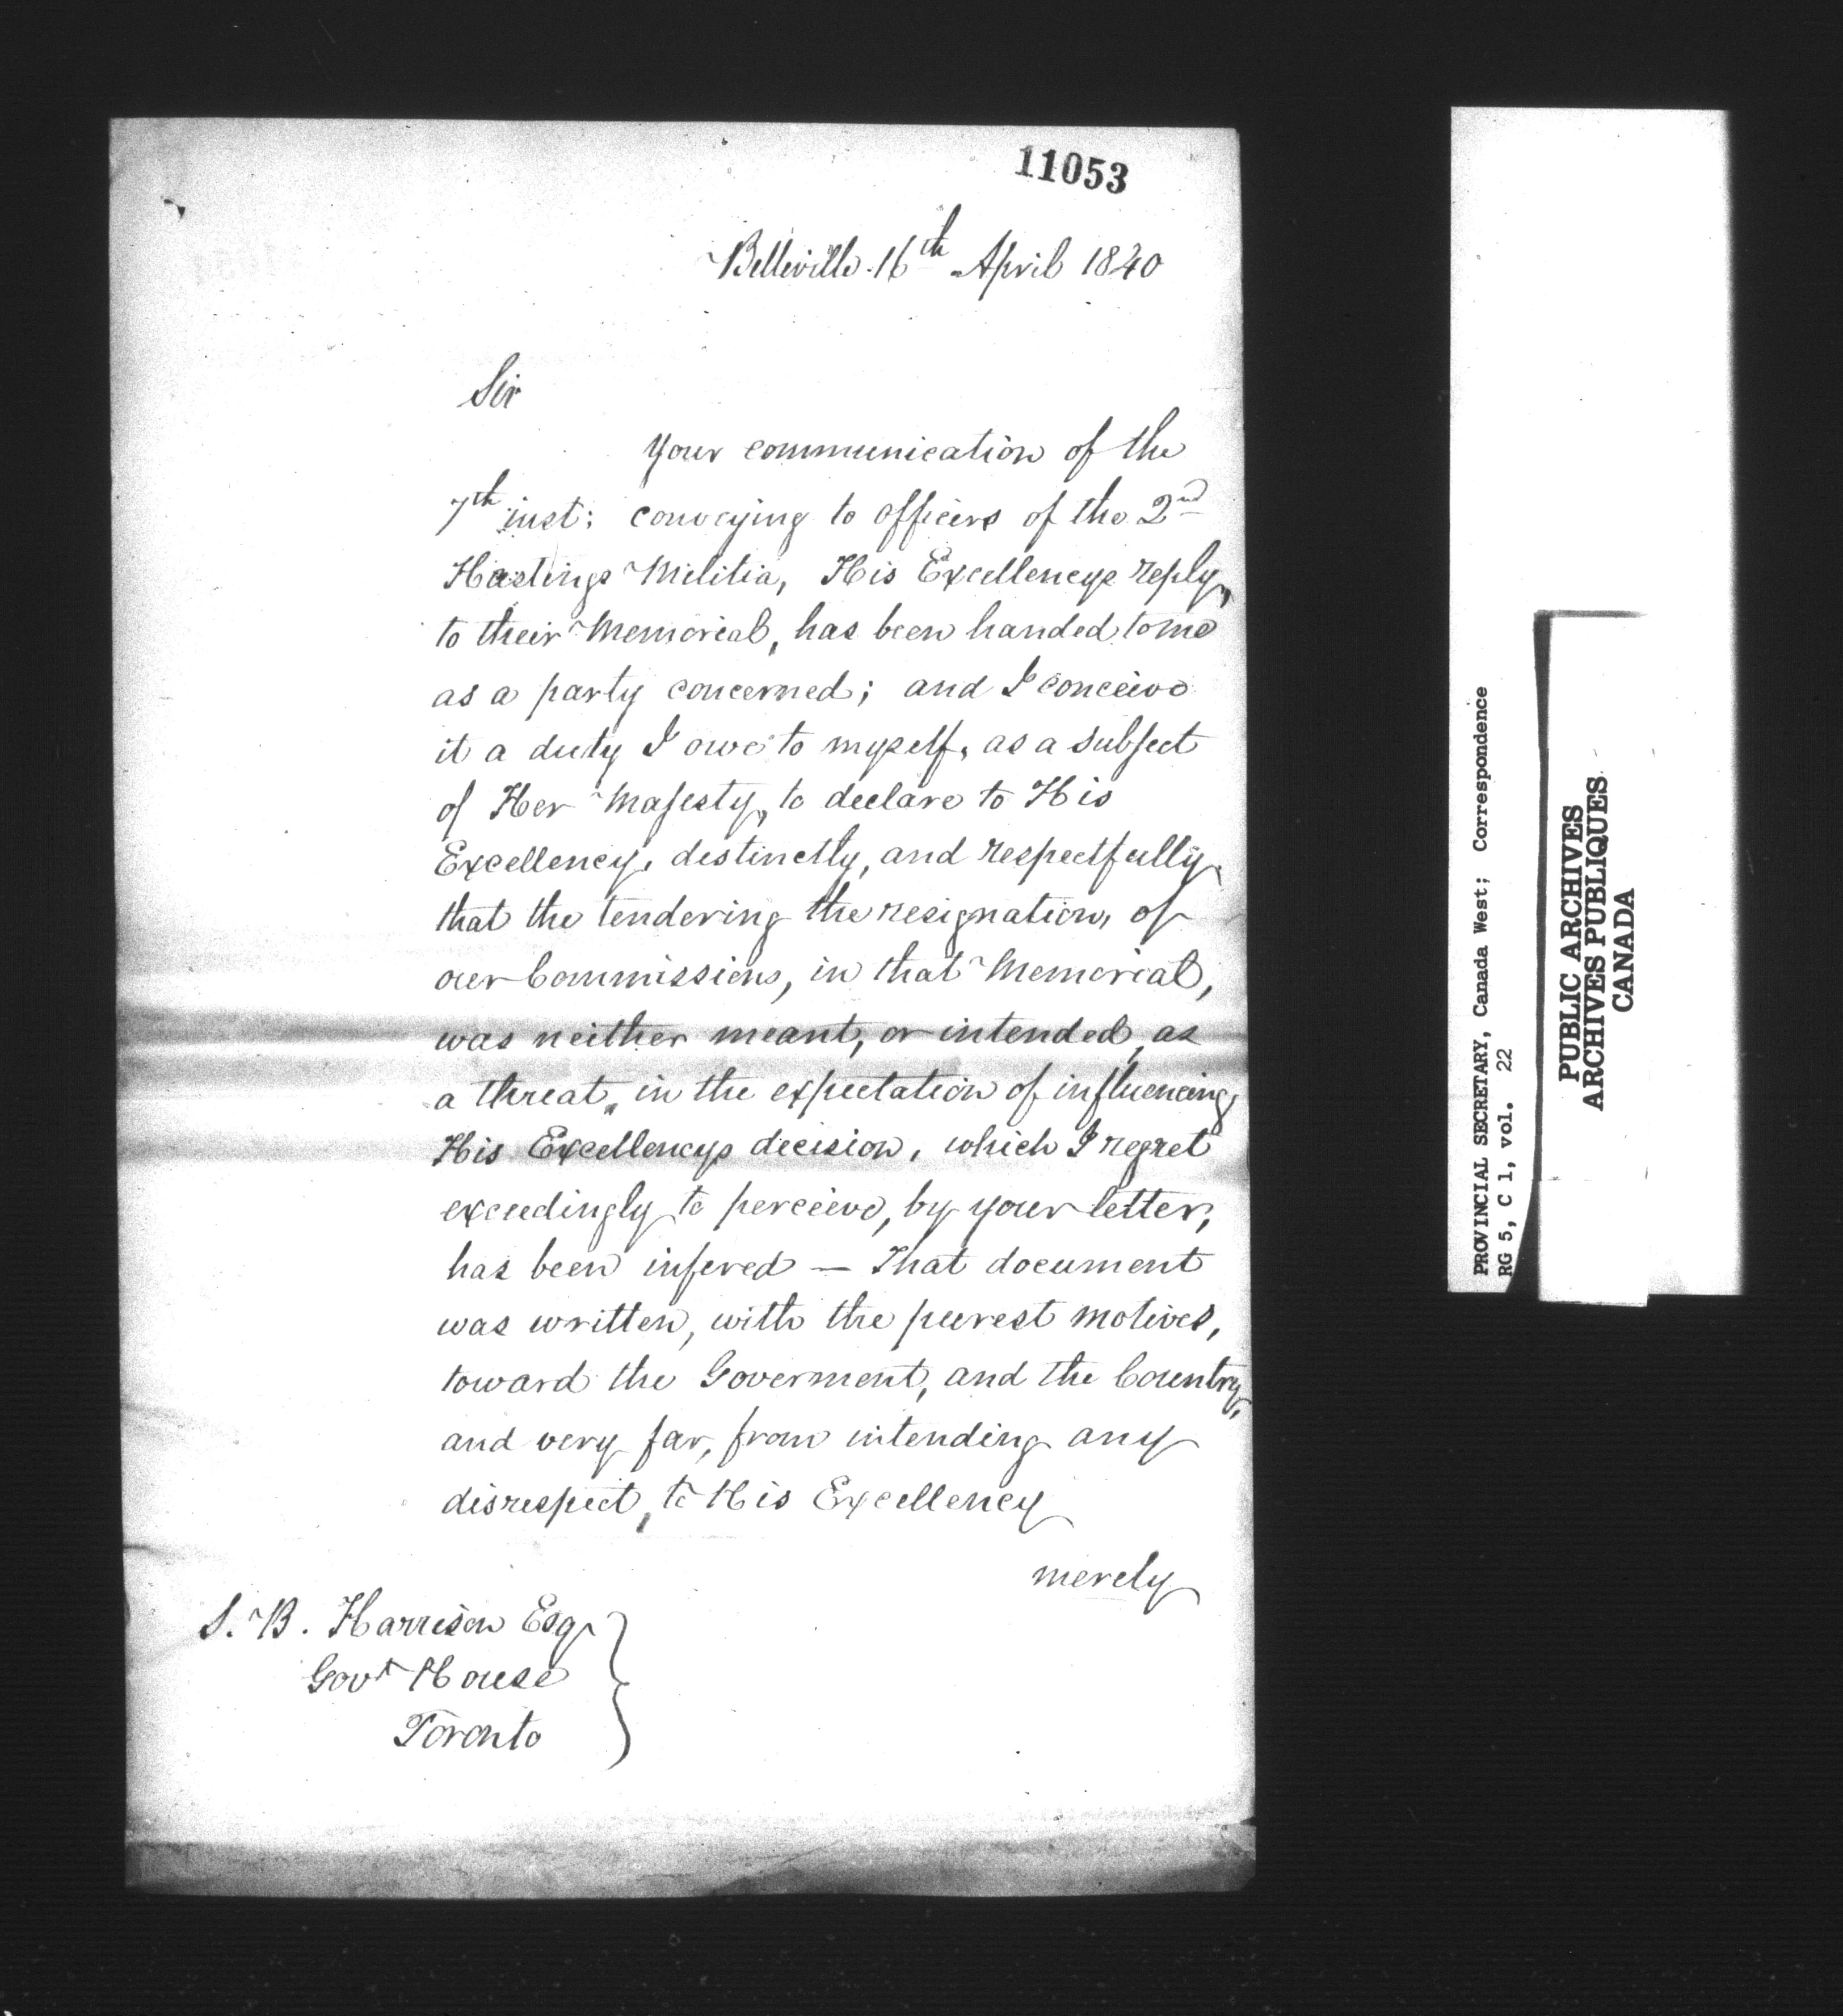 11053
Belleville 16th April 1840
Sir
Your communication of the
7th inst: conveying to officers of the 2nd
Hastings Militia, His Excellencys reply,
to their Memorial, has been handed to me
as a party concerned; and I conceive
it a duty I owe to myself, as a subject
of Her Majesty, to declare to His
Excellency, distinctly, and respectfully,
that the tendering the resignation, of
our Commissions, in that Memorial,
was neither meant, or intended, as
a threat, in the expectation of influencing,
His Excellencys decision, which I regret
exceedingly to perceive, by your letter,
has been infered — That document
was written, with the purest motives,
toward the Goverment, and the Country,
and very far, from intending any
disrespect, to His Excellency
merely
S. B. Harrison Esqr
Govt House
Toronto
PROVINCIAL SECRETARY, Canada West; Correspondence
RG 5, C 1, vol. 22
PUBLIC ARCHIVES
ARCHIVES PUBLIQUES
CANADA